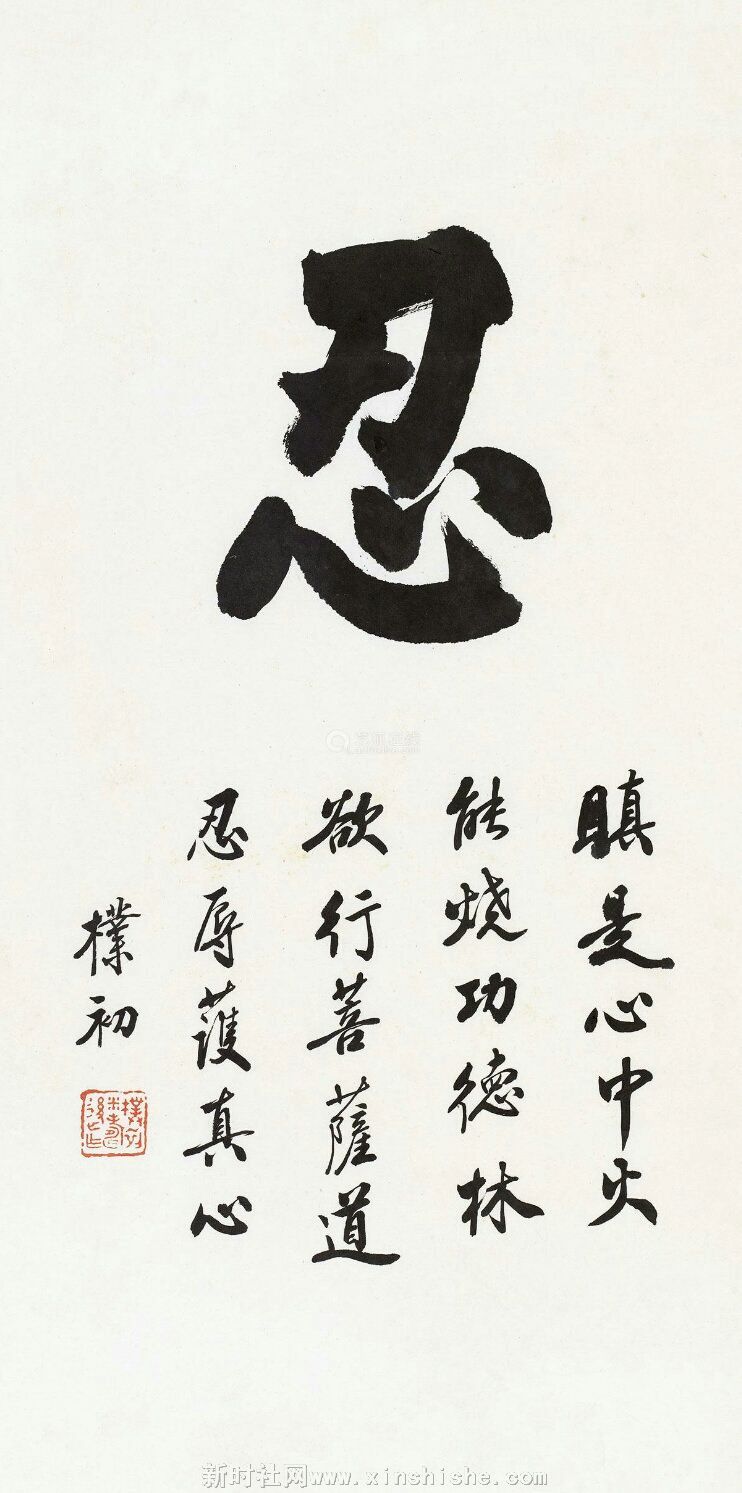 忍
瞋是心中火
能燒功德林
欲行菩薩道
忍辱護真心
樸初
新时社网www.xinshishe.com